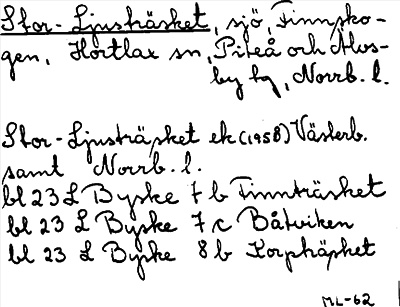 Stor-Ljusträsket, sjö, Finnsko-
gen, Hortlax sn, Piteå och Älvs-
by tg, Norrb. l.
Stor-Ljusträsket ek (1958) Västerb.
samt Norrb. l.
bl 23 L Byske 7 b Finnträsket
bl 23 L Byske 7 c Båtviken
bl 23 L Byske 8 b Korpträsket
ML-62